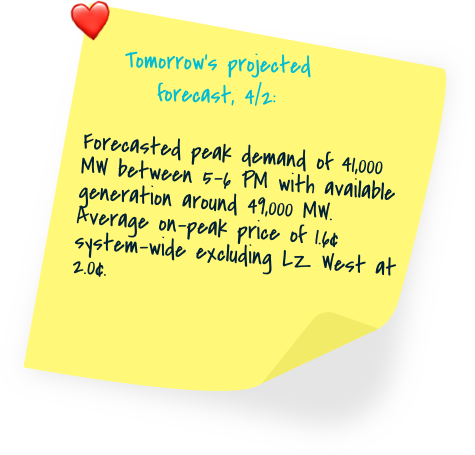 Tomorrow's projected
forecast, 4/2:
Forecasted peak demand of 41,000
MW between 5-6 PM with available
generation around 49,000 MW.
Average on-peak price of 1.6¢
system-wide excluding LZ West at
2.0¢.